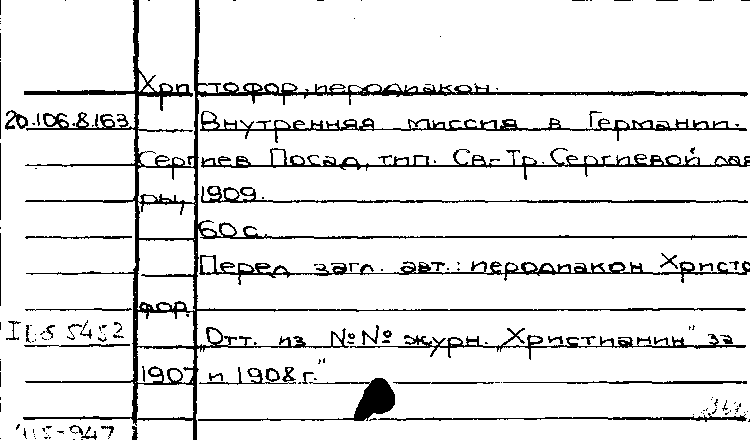 Христофор, иеродиакон.
20.106.8.163 Внутренняя миссия в Германии.
Сергиев Посад, тип. Св.-Тр. Сергиевой лав
ры, 1909.
60 с.
Перед загл. авт.: иеродиакон Христо
фор.
5452 „Отт. из №№ журн. „Христианин" за
1907 и 1908 г."